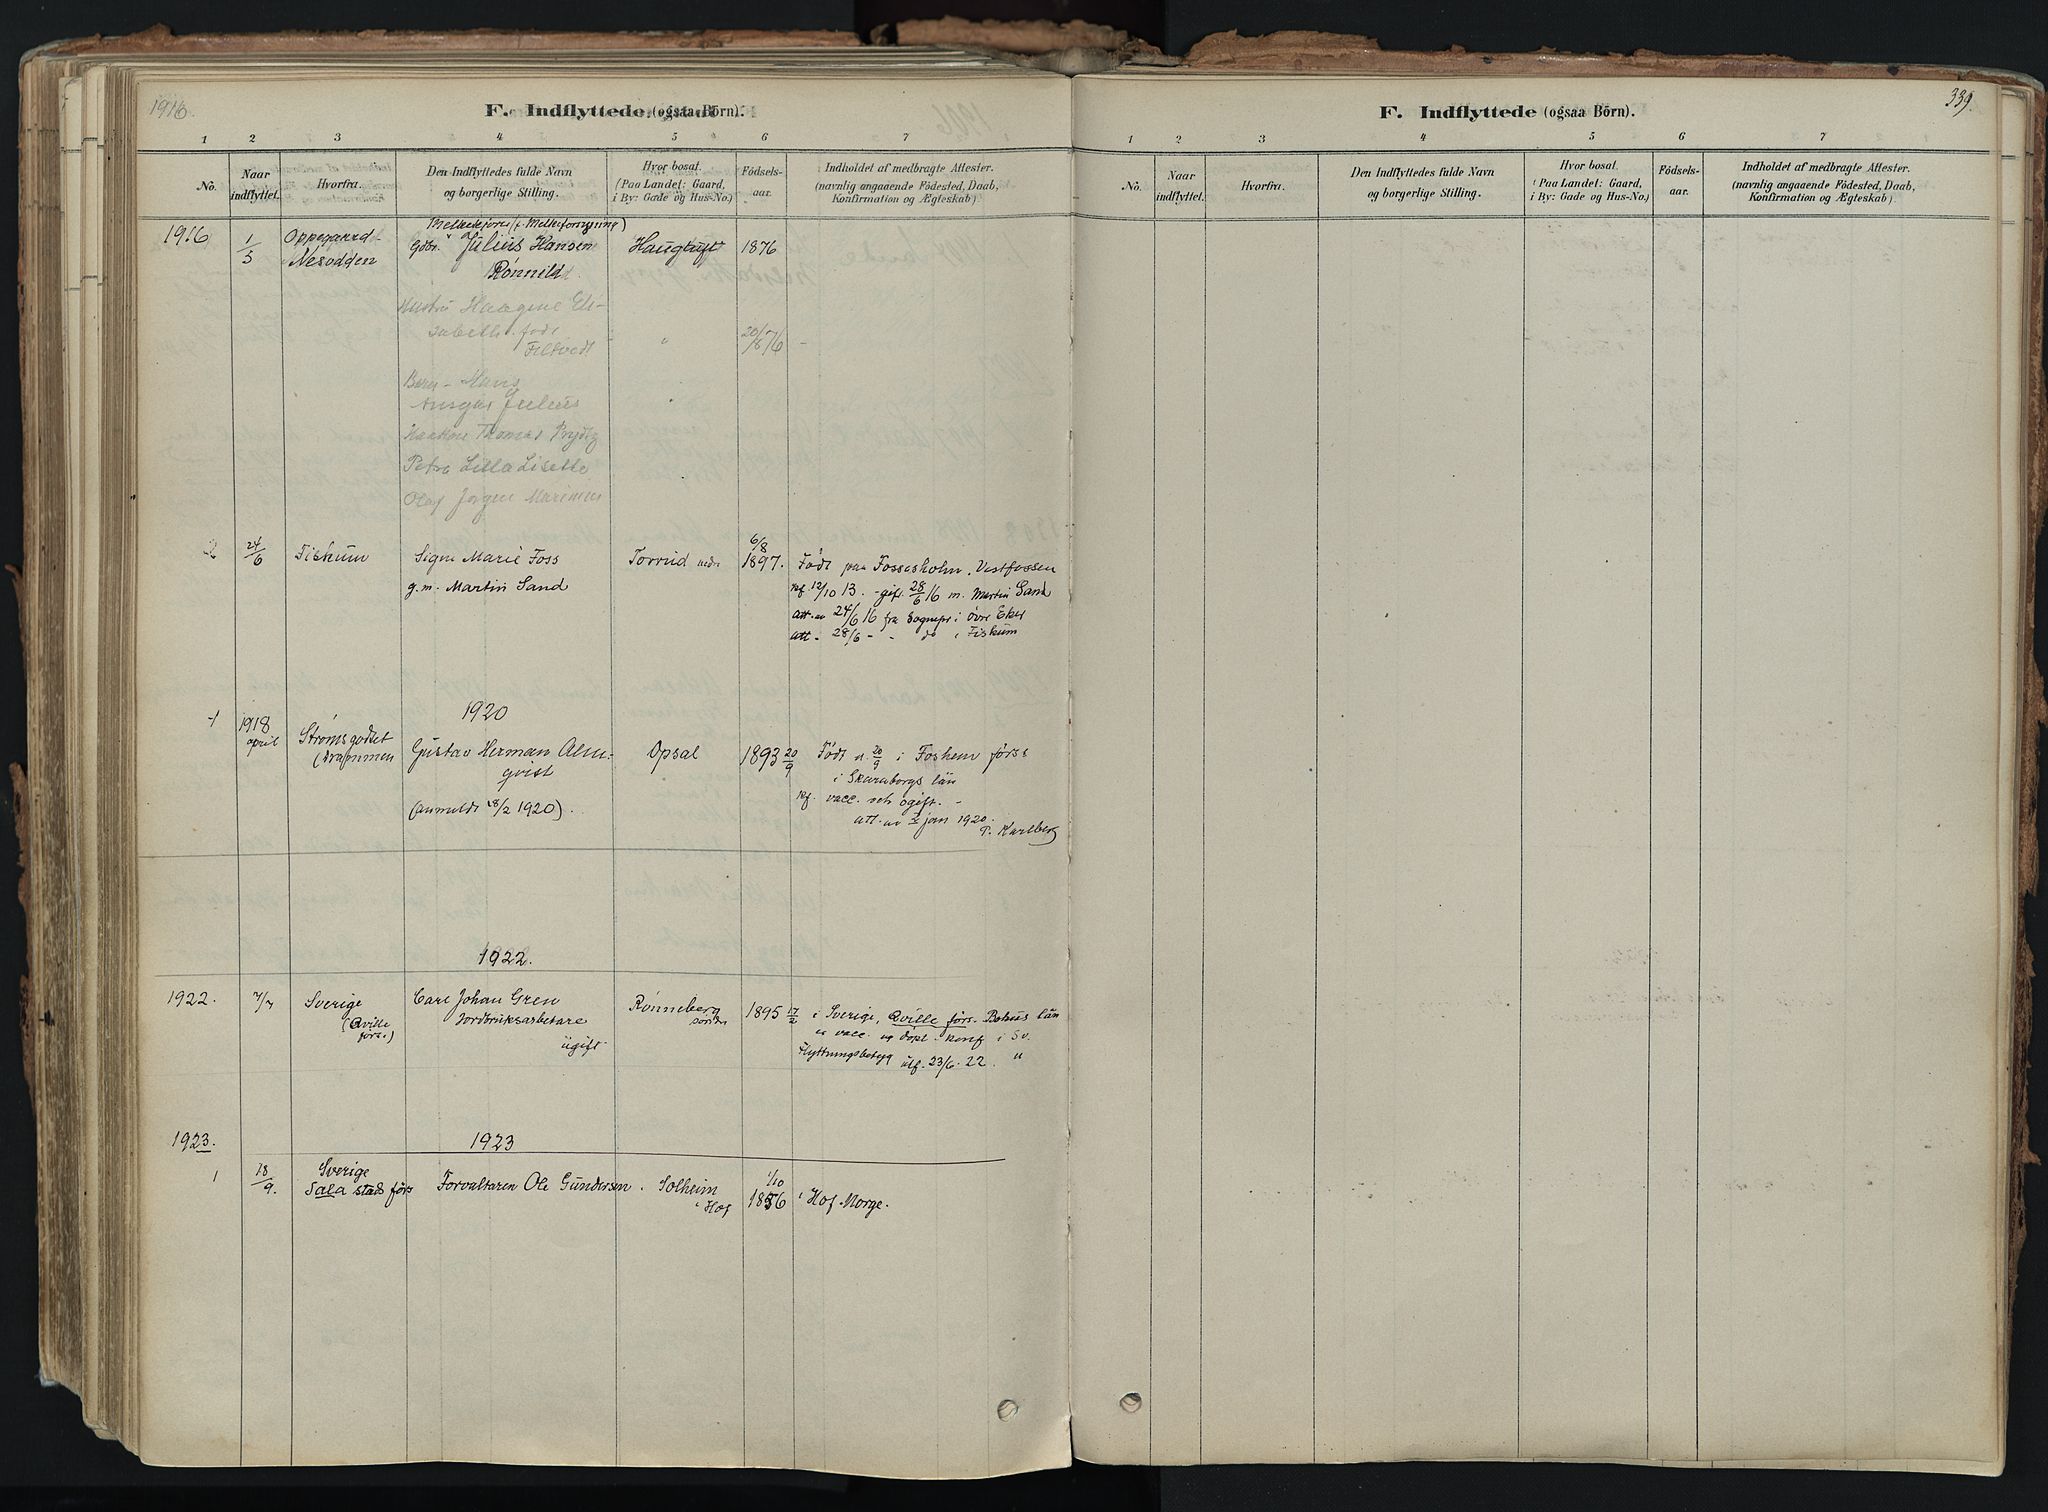 1916
F. Indflyttede (ogsaa Börn).
1 2 3 4 5 6 7
No. Naar indflyttet. Hvorfra. Den Indflyttedes fulde Navn og borgerlige Stilling. Hvor bosat. (Paa Landet: Gaard, i By: Gade og Hus-No.) Födsels-aar. Indholdet af medbragte Attester. (navnlig angaaende Födested, Daab, Konfirmation og Ægteskab)
1916 1/5 Oppegaard - Gdbr. Julius Hansen 1876
Nesodden Rønnild
Hustru Haagine Eli-
sabeth født
Filtvedt " 20/6 76
Børn - Hans
Ansgar Julius
Haakon Thomas Prydtz
Petra Lilla Lisette
Olaf Jørgen Marinius
2 24/6 Fiskum Signe Marie Foss Torrud nedr 6/8 1897. Født paa Fossesholm, Vestfossen
g.m. Martin Sand kf. 12/10 13. - gift. 28/6 16 m. Martin Sand
att. av 24/6 16 fra Sognepr i Øvre Eker
att - 28/6 - - do i Fiskum
1920
1 1918 april Strømsgodset Gustav Herman Alm- Opsal 1893 20/9 Født d. 20/9 i Foshem förs:
(Drammen qvist i Skaraborgs län
kf. vacc. och ogift. -
(anmeldt 18/2 1920). att. av jan 1920.
P. Karlberg
1922.
1922. 7/7 Sverige Carl Johan Gren Rønneberg 1895 17/2 i Sverige, Qville förs. Bohus län
(Qville förs.) Jordbruksarbetare søndre vacc. og døpt - konf i Sv.
ugift Flyttningsbetyg utf. 23/6. 22. "
1923. 1923
1 18/9. Sverige 1/10
Sala stads förs Forvaltaren Ole Gundersen. Solheim i Hof 1856 i Hof. Norge.
339.
F. Indflyttede (ogsaa Börn).
1 2 3 4 5 6 7
No. Naar indflyttet. Hvorfra. Den Indflyttedes fulde Navn og borgerlige Stilling. Hvor bosat. (Paa Landet: Gaard, i By: Gade og Hus-No.) Födsels-aar. Indholdet af medbragte Attester. (navnlig angaaende Födested, Daab, Konfirmation og Ægteskab)